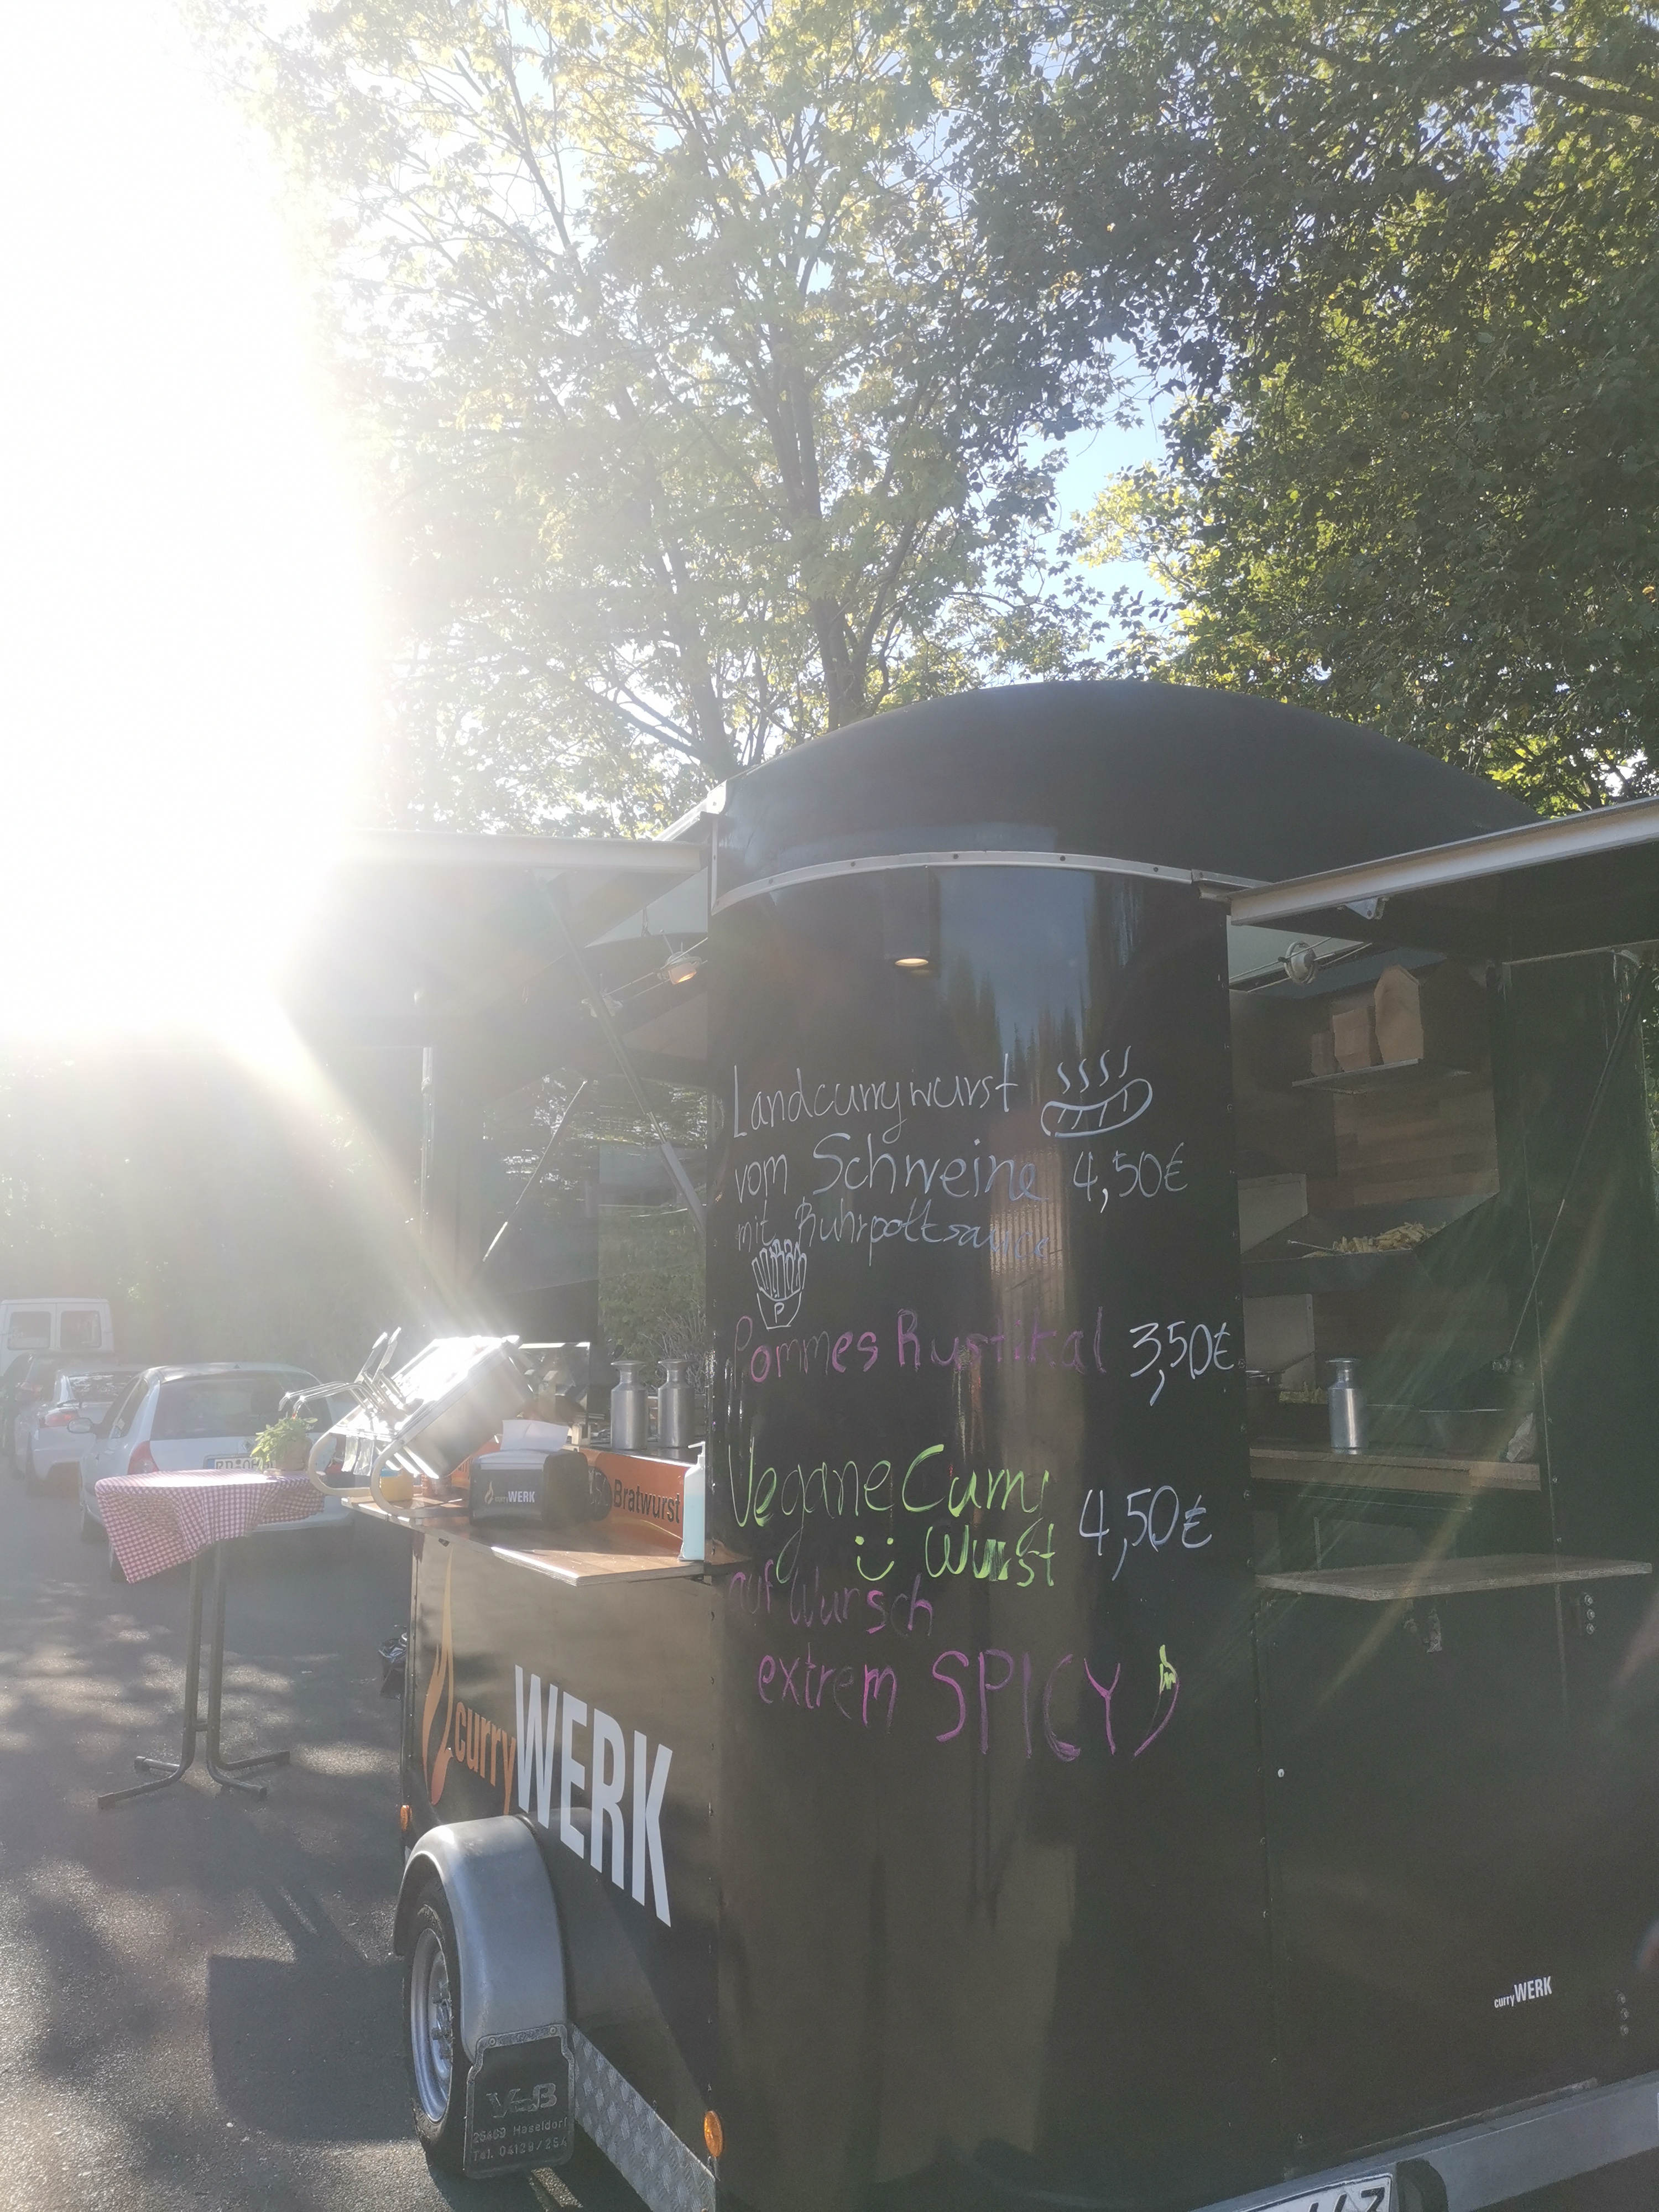 Landcurrywurst
vom Schweine 4,50€
mit Ruhrpottsauce
P
Pommes Rustikal 3,50€
Vegane Curry
Wurst 4,50€
auf Wunsch
extrem SPICY
Bratwurst
curryWERK
curryWERK
curryWERK
V&B
25489 Haseldorf
Tel. 04129/254